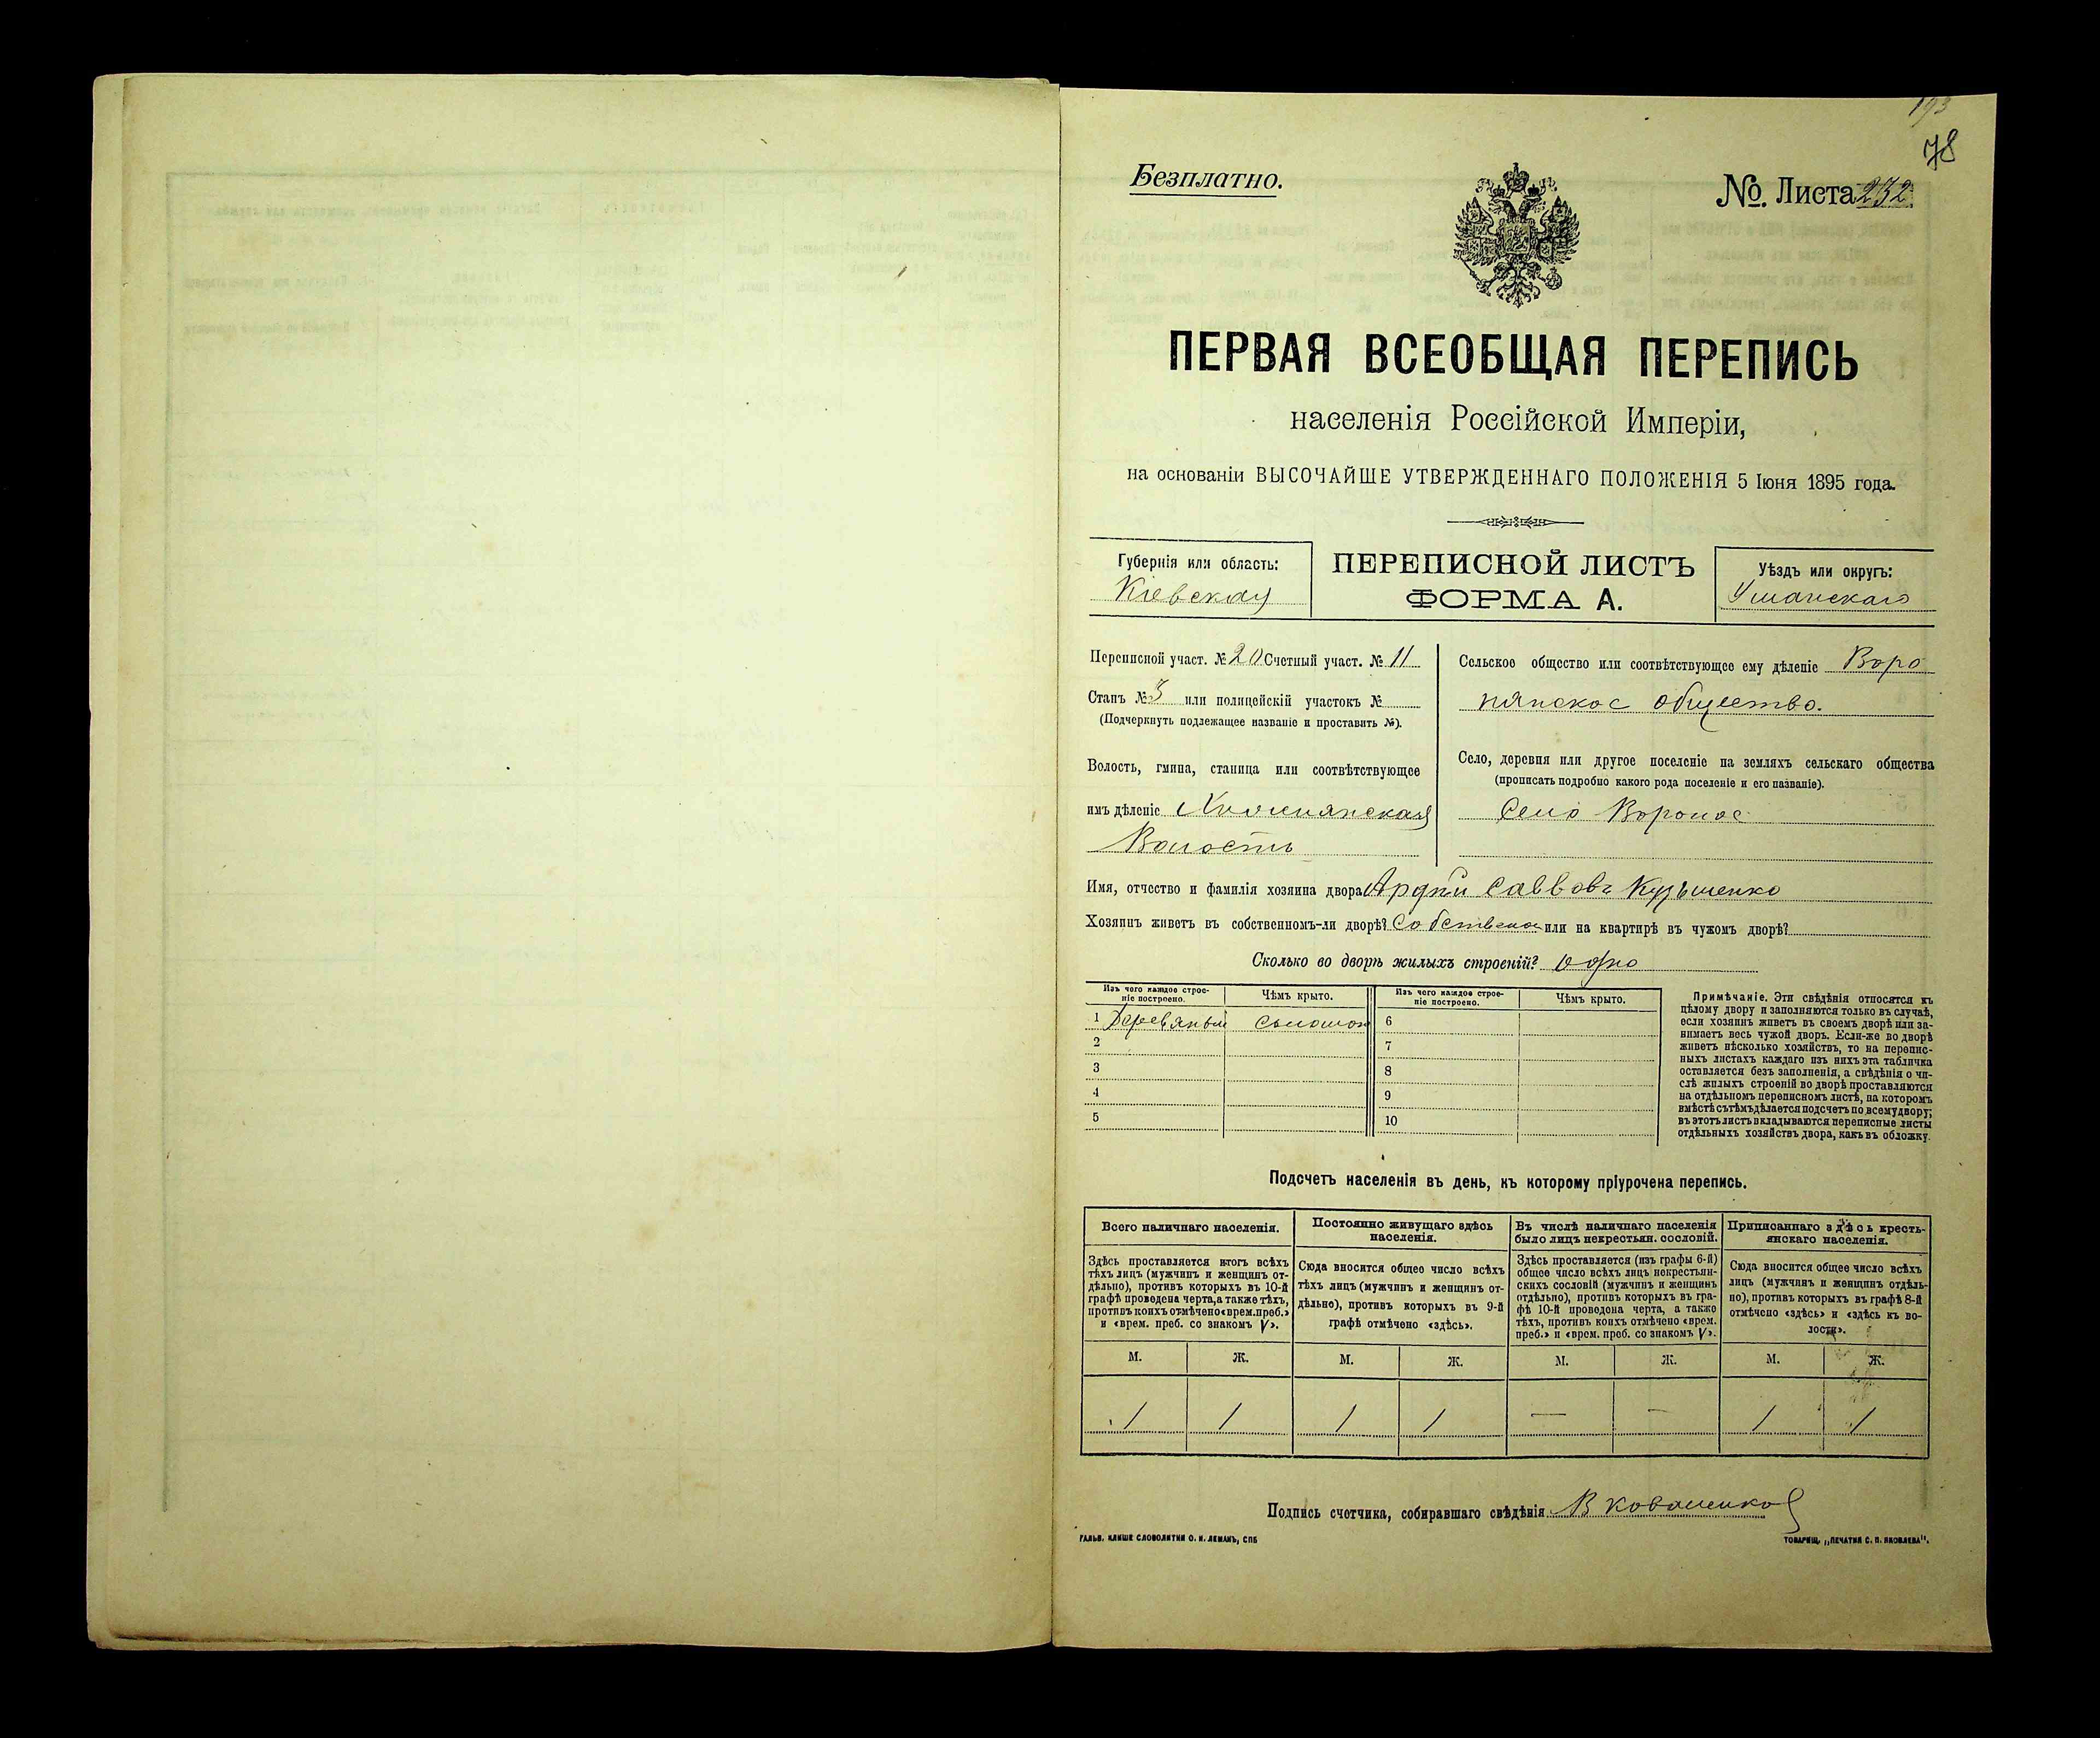 193
78
Безплатно.
№. Листа 232
ПЕРВАЯ ВСЕОБЩАЯ ПЕРЕПИСЬ
населенія Россійской Имперіи,
на основаніи ВЫСОЧАЙШЕ УТВЕРЖДЕННАГО ПОЛОЖЕНІЯ 5 Іюня 1895 года.
Губернія или область:
Кіевская
ПЕРЕПИСНОЙ ЛИСТЪ
ФОРМА А.
Уѣздъ или округъ:
Уманскаго
Переписной участ. № 20 Счетный участ. № 11
Станъ № 3 или полицейскій участокъ №
(Подчеркнуть подлежащее названіе и проставить №).
Волость, гмина, станица или соотвѣтствующее
имъ дѣленіе
Волость
Сельское общество или соотвѣтствующее ему дѣленіе Воро
нянское общество.
Село, деревня или другое поселеніе на земляхъ сельскаго общества
(прописать подробно какого рода поселеніе и его названіе).
Село Вороное
Имя, отчество и фамилія хозяина двора Саввовъ
Хозяинъ живетъ въ собственномъ-ли дворѣ? или на квартирѣ въ чужомъ дворѣ?
Сколько во дворѣ жилыхъ строеній? одно
Изъ чего каждое строе-
ніе построено.
Чѣмъ крыто.
Изъ чего каждое строе-
ніе построено.
Чѣмъ крыто.
1 Деревяный соломой
2
3
4
5
6
7
8
9
10
Примѣчаніе. Эти свѣдѣнія относятся къ
цѣлому двору и заполняются только въ случаѣ,
если хозяинъ живетъ въ своемъ дворѣ или за-
нимаетъ весь чужой дворъ. Если-же во дворѣ
живетъ нѣсколько хозяйствъ, то на перепис-
ныхъ листахъ каждаго изъ нихъ эта табличка
оставляется безъ заполненія, а свѣдѣнія о чи-
слѣ жилыхъ строеній во дворѣ проставляются
на отдѣльномъ переписномъ листѣ, на которомъ
вмѣстѣ съ тѣмъ дѣлается подсчетъ по всему двору;
въ этотъ листъ вкладываются переписные листы
отдѣльныхъ хозяйствъ двора, какъ въ обложку.
Подсчетъ населенія въ день, къ которому пріурочена перепись.
Всего наличнаго населенія.
Здѣсь проставляется итогъ всѣхъ
тѣхъ лицъ (мужчинъ и женщинъ от-
дѣльно), противъ которыхъ въ 10-й
графѣ проведена черта, а также тѣхъ,
противъ коихъ отмѣчено «врем. преб.»
и «врем. преб. со знакомъ V».
Постоянно живущаго здѣсь
населенія.
Сюда вносится общее число всѣхъ
тѣхъ лицъ (мужчинъ и женщинъ от-
дѣльно), противъ которыхъ въ 9-й
графѣ отмѣчено «здѣсь».
Въ числѣ наличнаго населенія
было лицъ некрестьян. сословій.
Здѣсь проставляется (изъ графы 6-й)
общее число всѣхъ лицъ некрестьян-
скихъ сословій (мужчинъ и женщинъ
отдѣльно), противъ которыхъ въ гра-
фѣ 10-й проведена черта, а также
тѣхъ, противъ коихъ отмѣчено «врем.
преб.» и «врем. преб. со знакомъ V».
Приписаннаго здѣсь кресть-
янскаго населенія.
Сюда вносится общее число всѣхъ
лицъ (мужчинъ и женщинъ отдѣль-
но), противъ которыхъ въ графѣ 8-й
отмѣчено «здѣсь» и «здѣсь къ во-
лости».
М. Ж. М. Ж. М. Ж. М. Ж.
1 1 1 1 — — 1 1
Подпись счетчика, собиравшаго свѣдѣнія В Коваленко
ГАЛЬВ. КЛИШЕ СЛОВОЛИТНИ О. И. ЛЕМАНЪ, СПБ
ТОВАРИЩ. „ПЕЧАТНЯ С. П. ЯКОВЛЕВА".